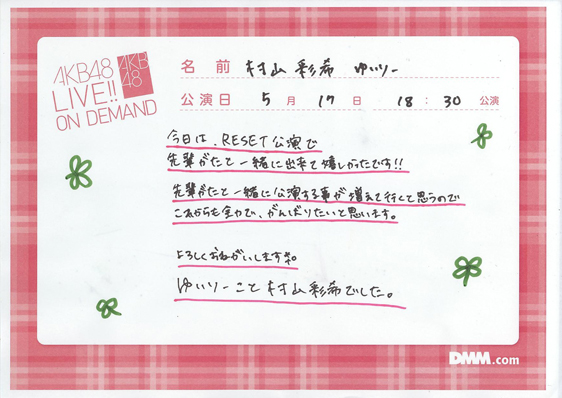 AKB48
LIVE!!
ON DEMAND
AKB
48
名前 村山彩希 ゆいりー
公演日 5月17日 18:30公演
今日は、RESET公演で
先輩がたと一緒に出来て嬉しかったです!!
先輩がたと一緒に公演する事が増えて行くと思うので
これからも全力で、がんばりたいと思います。
よろしくおねがいします。
ゆいりーこと村山彩希でした。
DMM.com